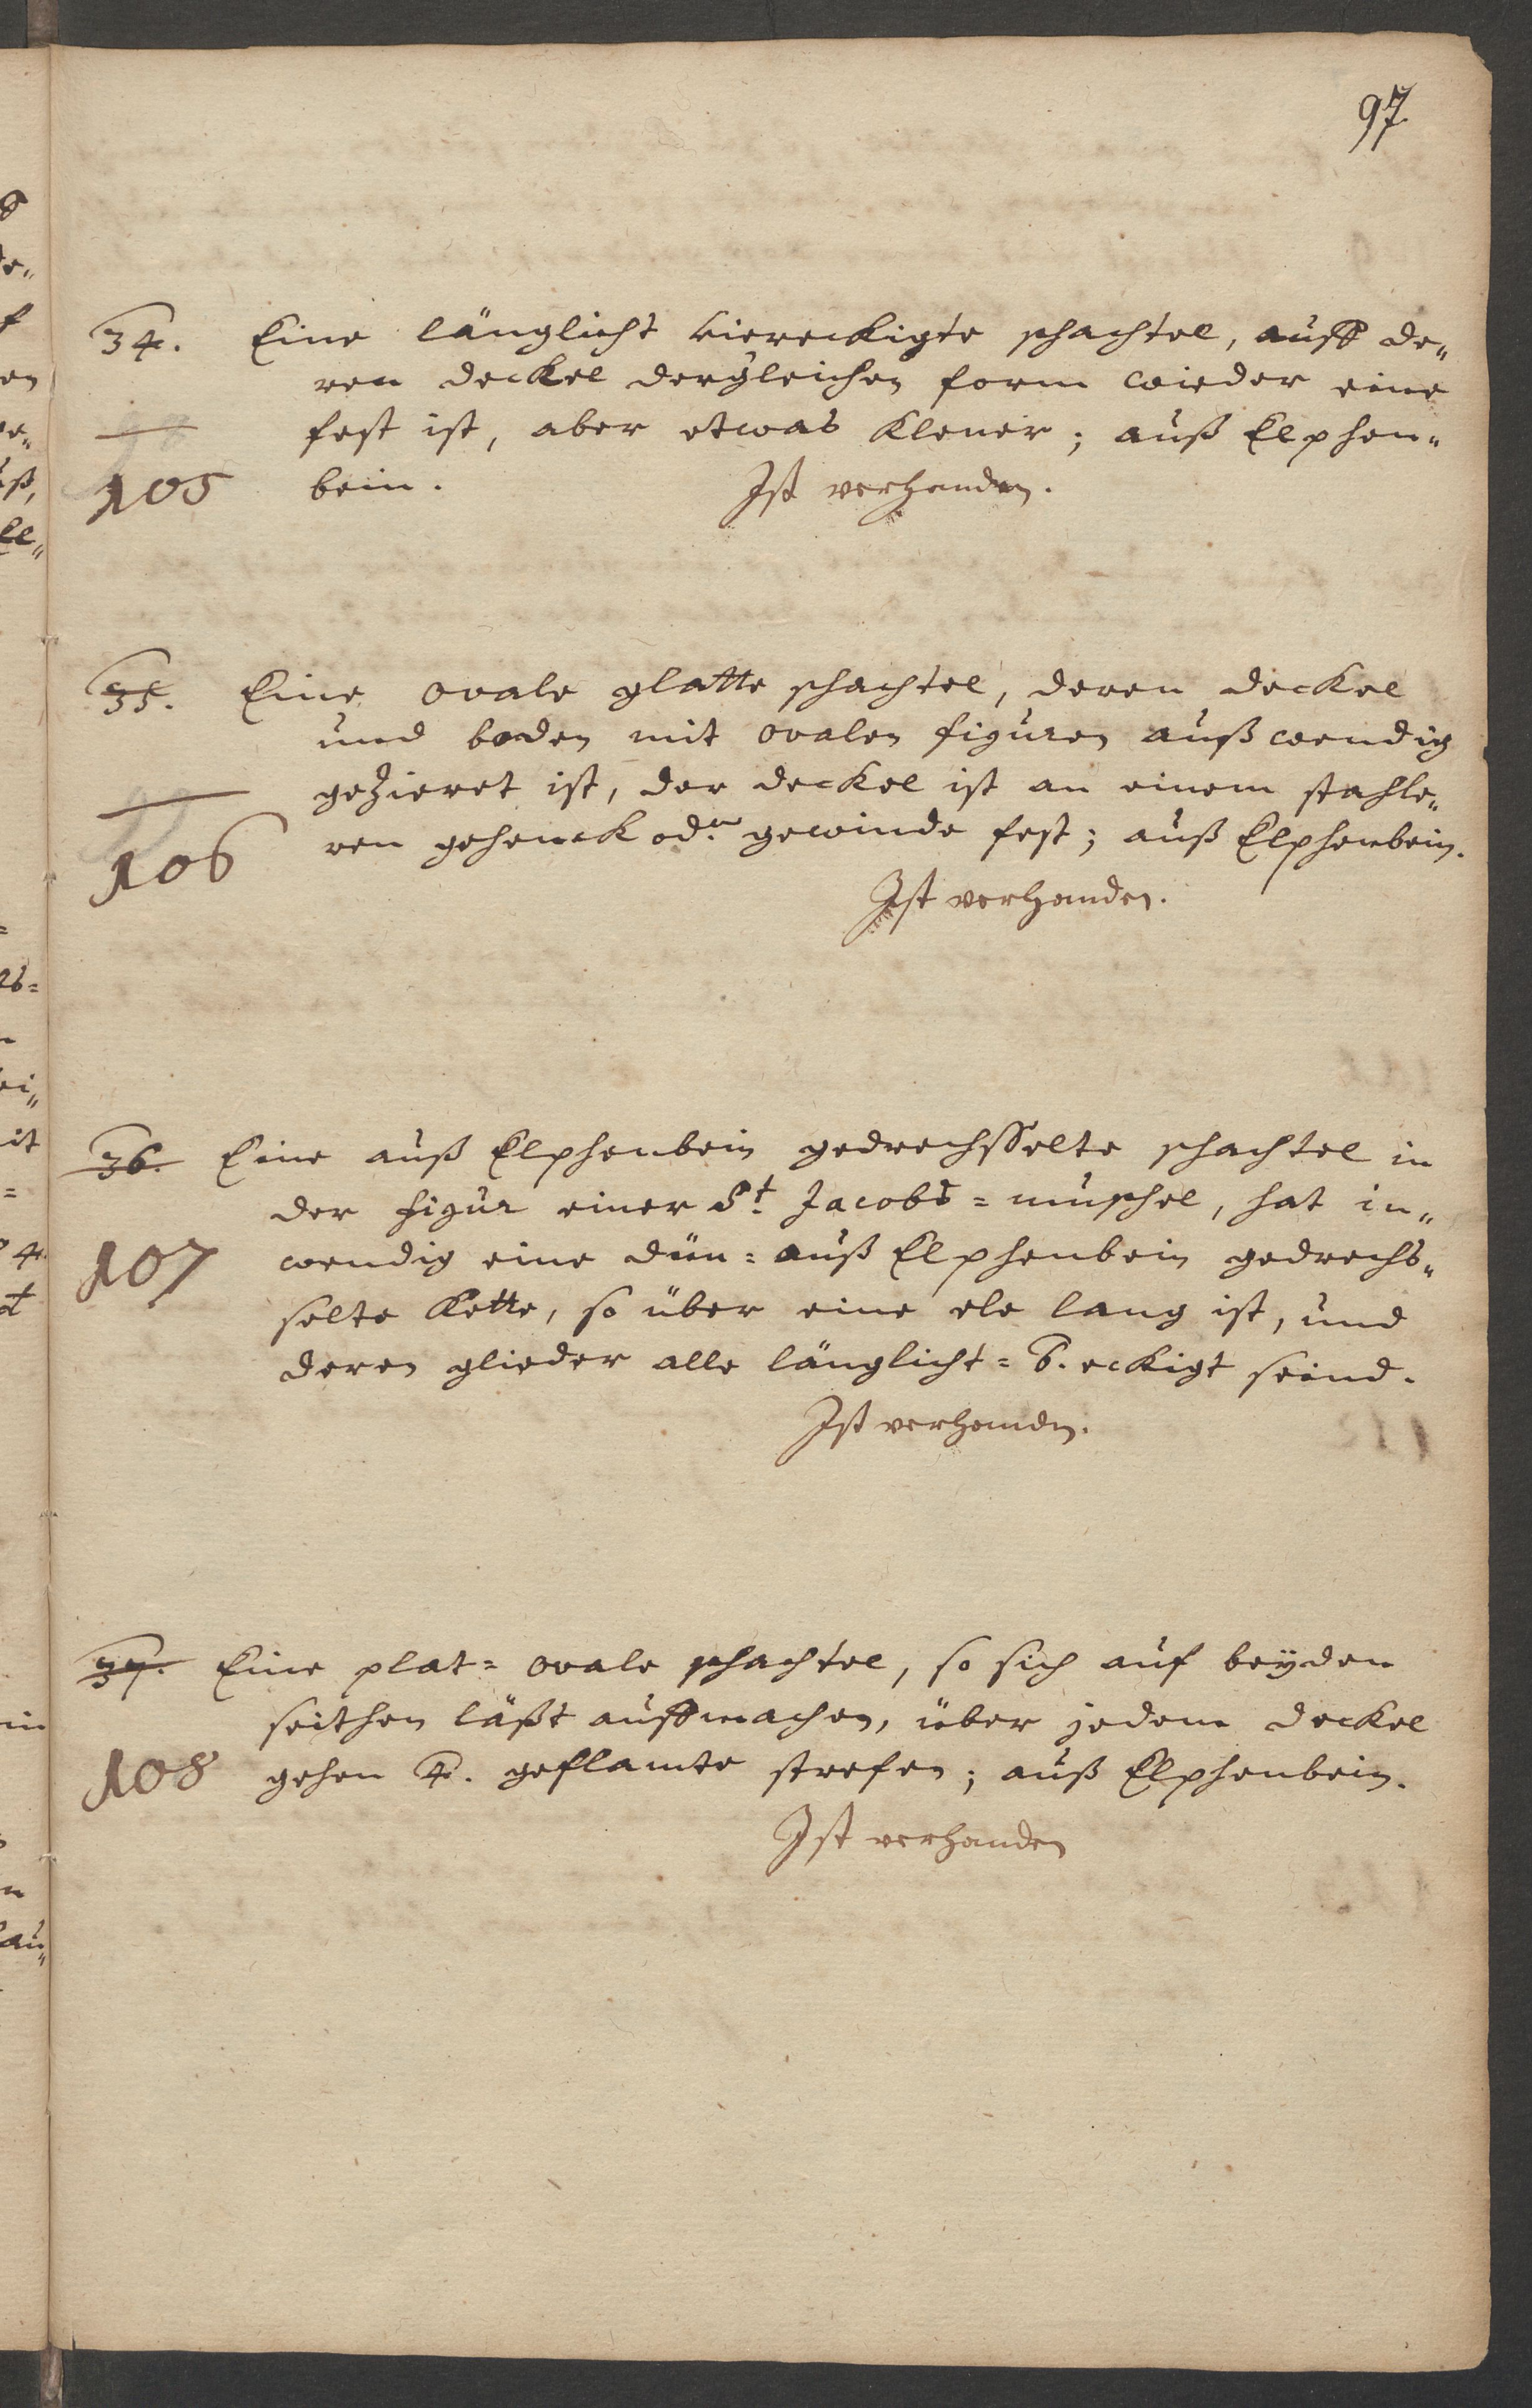 97
34. Eine länglicht viereckigte schachtel, auff de„
ren deckel dergleichen form wieder eine
fest ist, aber etwas klener; auß Elphen„
105 bein. Ist verhanden.
35. Eine ovale glatte schachtel, deren deckel
und boden mit ovalen figuren außwendig
gezieret ist, der deckel ist an einem stahle„
106 ren gehenck od.er gewinde fest; auß Elphenbein.
Ist verhanden.
36. Eine auß Elphenbein gedrechsselte schachtel in
der figur einer St. Jacobs=muschel, hat in„
107 wendig eine dün= auß Elphenbein gedrechs„
selte kette, so über eine ele lang ist, und
deren glieder alle länglicht= 6. eckigt seind.
Ist verhanden.
37. Eine plat= ovale schachtel, so sich auf beÿden
seithen läßt auffmachen, über jedem deckel
108 gehen 4. geflamte strefen; auß Elphenbein.
Ist verhanden